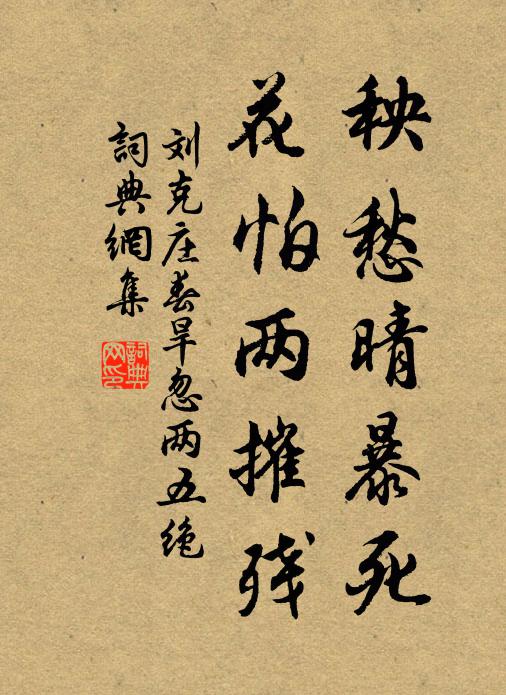 秧愁晴暴死
花怕雨摧残
刘克庄春旱忽雨五绝
詞典網集
詞典
网印